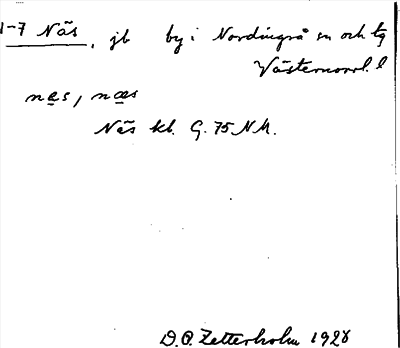 1-7 Näs, jb by i Nordingrå sn och tg
Västernorrl. l
næs, næs
Näs kl. G. 75 N M.
D.O. Zetterholm 1928